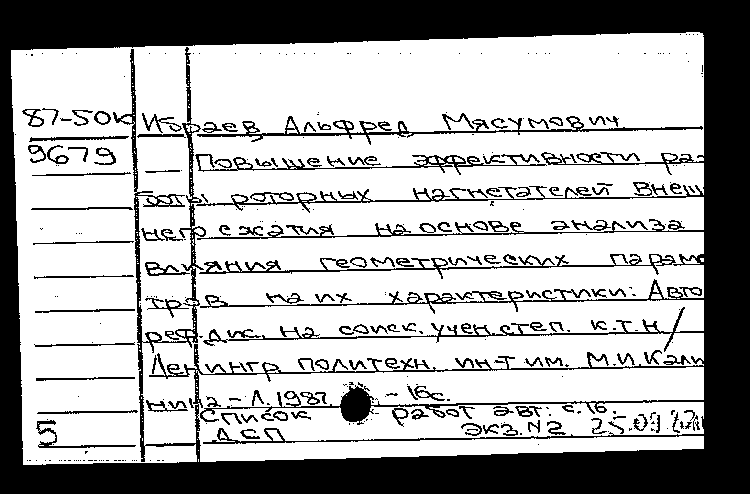 87-50к Ибраев Альфред Мясумович
9679 Повышение эффективности ра-
боты роторных нагнетателей внеш
него сжатия на основе анализа
влияния геометрических параме
тров на их характеристики: Авто
реф. дис. на соиск. учен. степ. к.т.н/
Ленингр политехн. ин-т им. М.И. Кали
нина - Л. 1987. - 16с.
Список работ авт: с.16.
5 ДСП экз. №2 25.09